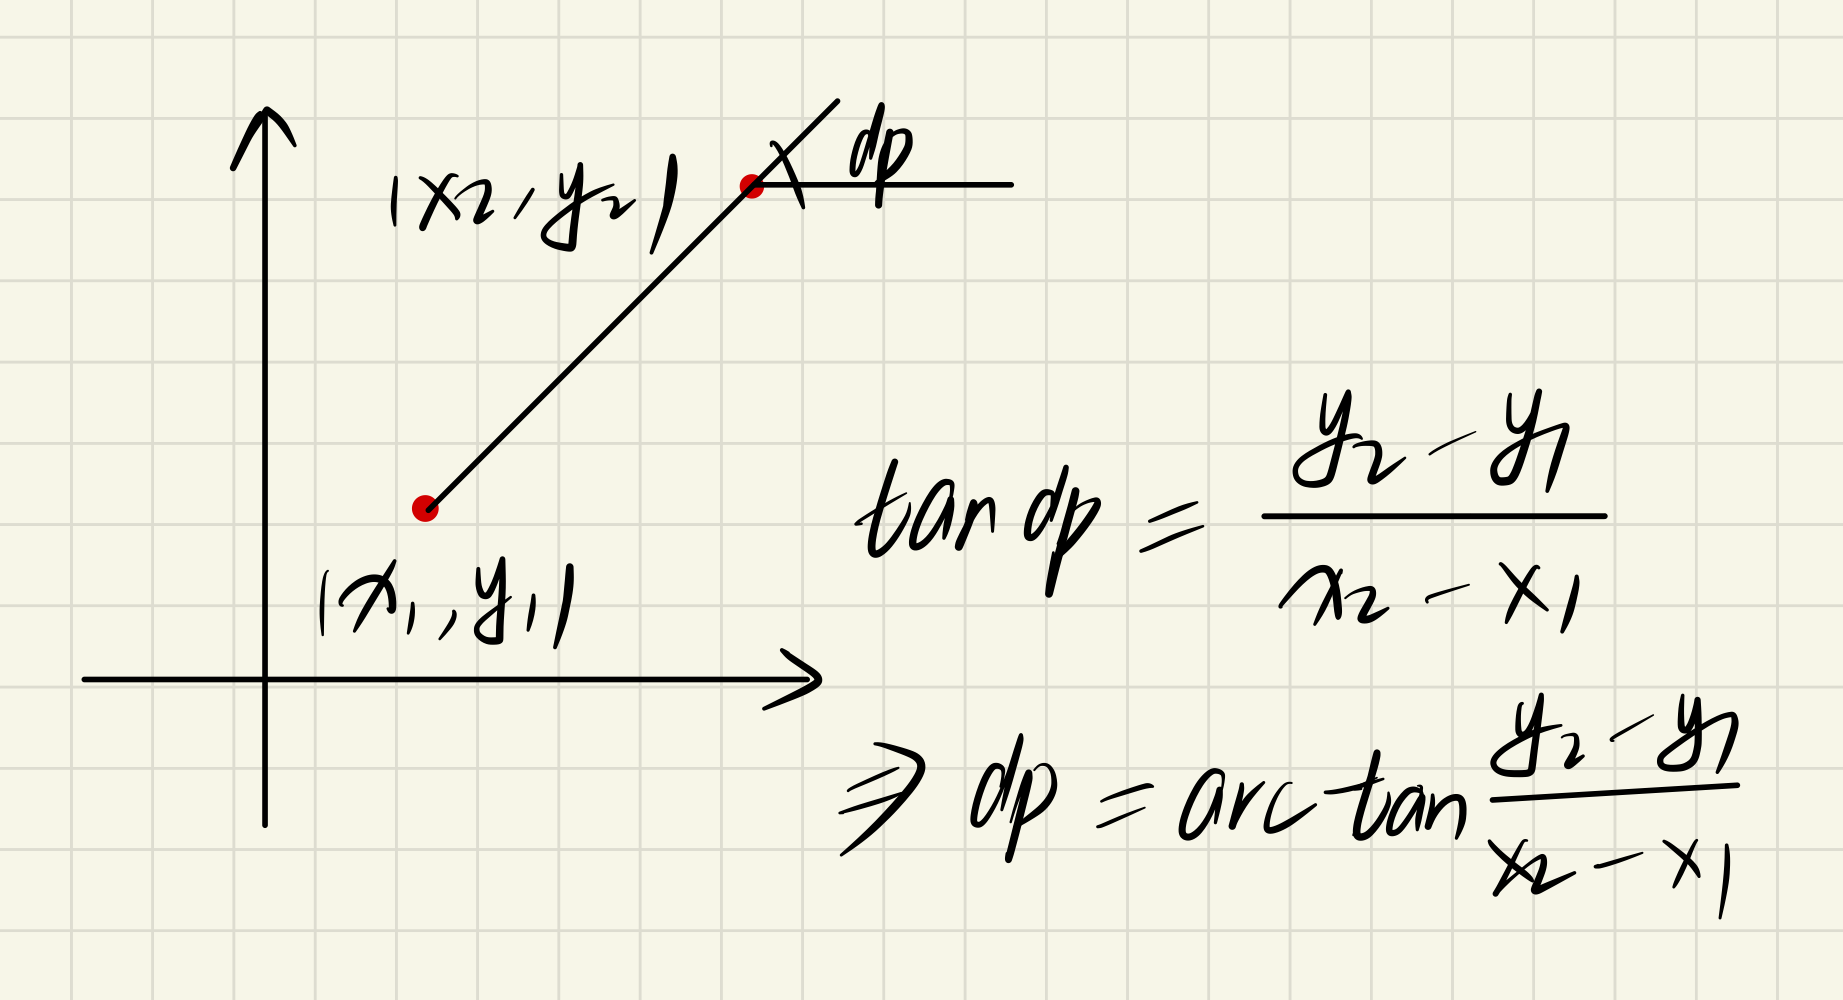 dp
(x2, y2)
(x1, y1)
tan dp = \frac{y2 - y1}{x2 - x1}
⇒ dp = arc tan \frac{y2 - y1}{x2 - x1}